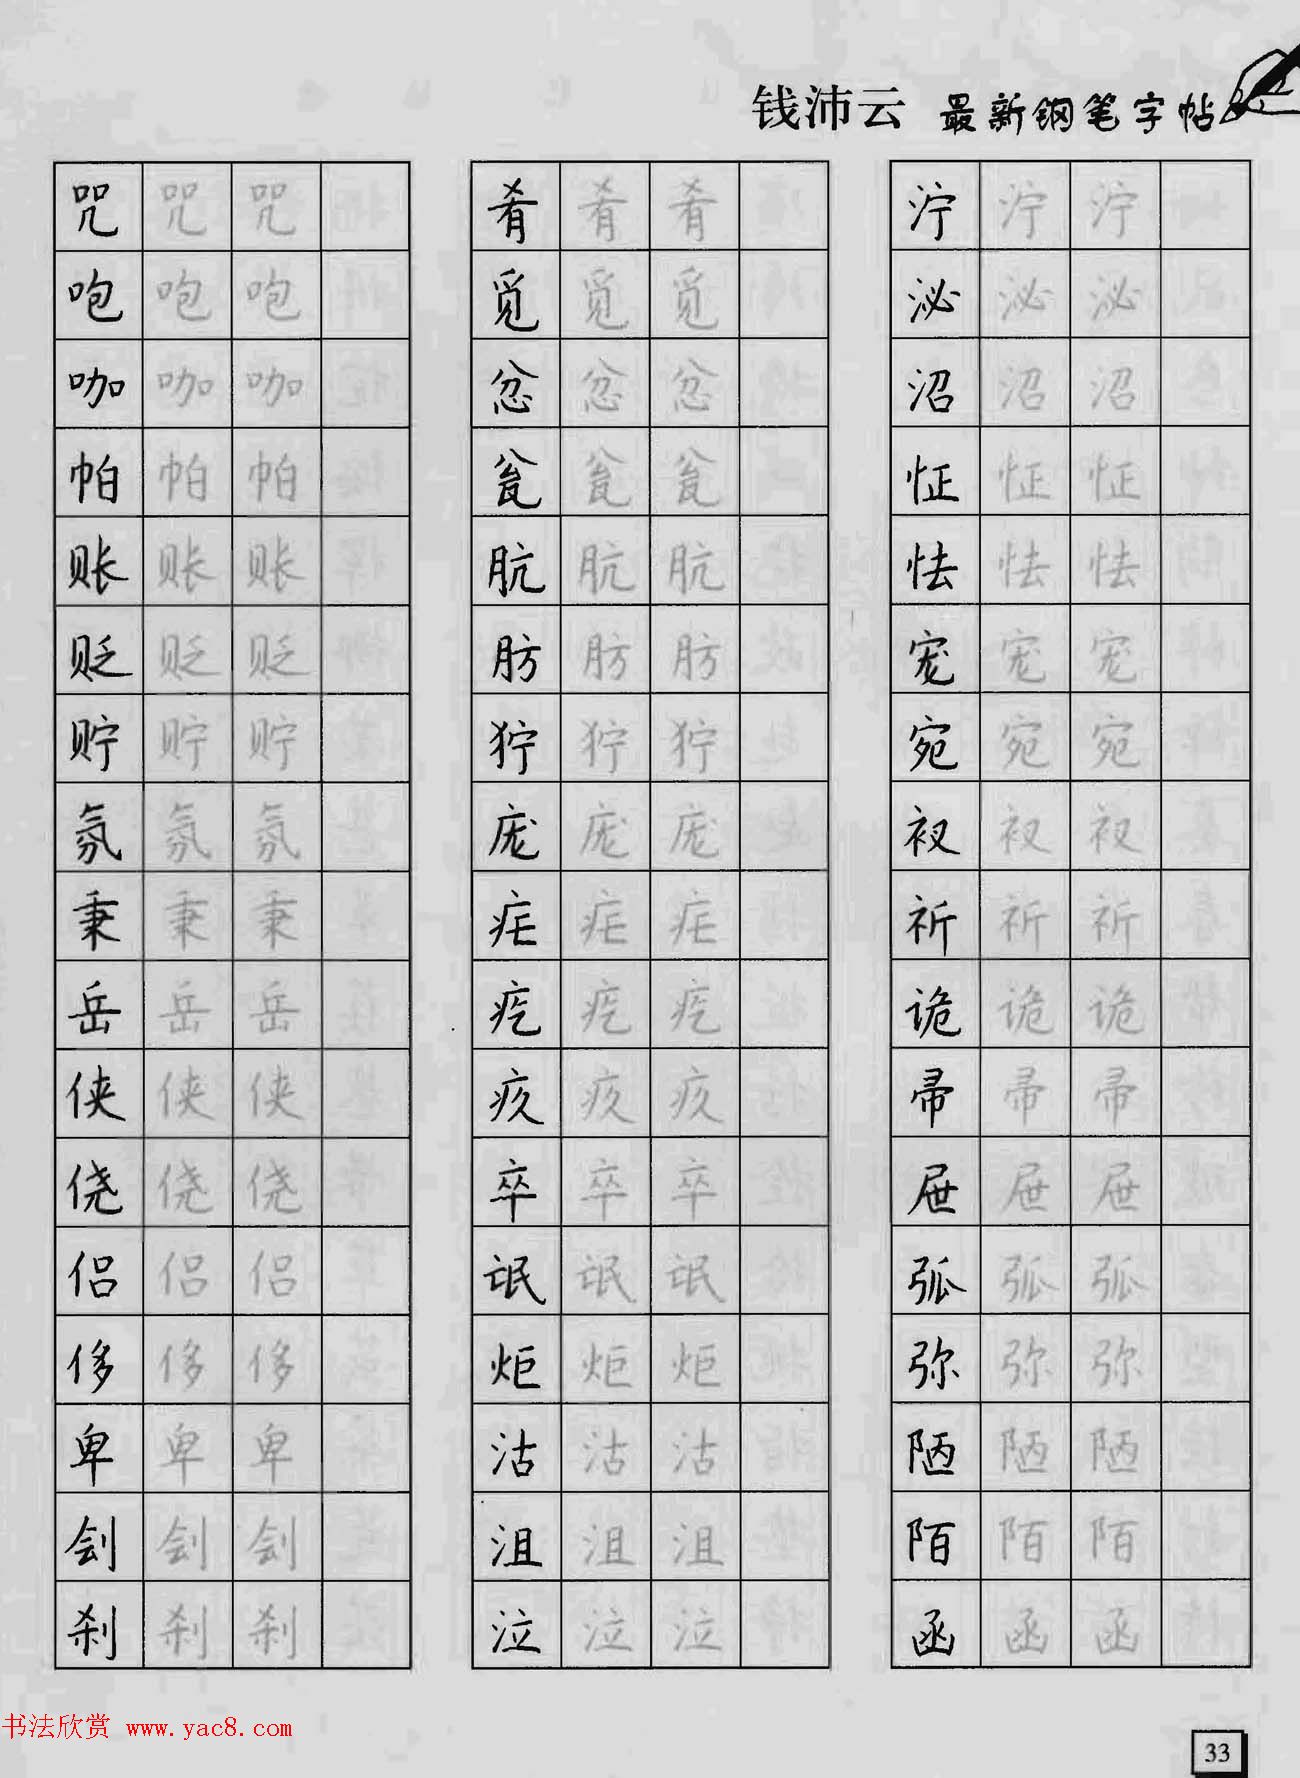 钱沛云 最新钢笔字帖
咒 咒 咒 肴 肴 肴 泞 泞 泞
咆 咆 咆 觅 觅 觅 泌 泌 泌
咖 咖 咖 忿 忿 忿 沼 沼 沼
帕 帕 帕 瓮 瓮 瓮 怔 怔 怔
账 账 账 肮 肮 肮 怯 怯 怯
贬 贬 贬 肪 肪 肪 宠 宠 宠
贮 贮 贮 狞 狞 狞 宛 宛 宛
氛 氛 氛 庞 庞 庞 衩 衩 衩
秉 秉 秉 疟 疟 疟 祈 祈 祈
岳 岳 岳 疙 疙 疙 诡 诡 诡
侠 侠 侠 疚 疚 疚 帚 帚 帚
侥 侥 侥 卒 卒 卒 屉 屉 屉
侣 侣 侣 氓 氓 氓 弧 弧 弧
侈 侈 侈 炬 炬 炬 弥 弥 弥
卑 卑 卑 沽 沽 沽 陋 陋 陋
刽 刽 刽 沮 沮 沮 陌 陌 陌
刹 刹 刹 泣 泣 泣 函 函 函
书法欣赏 www.yac8.com
33